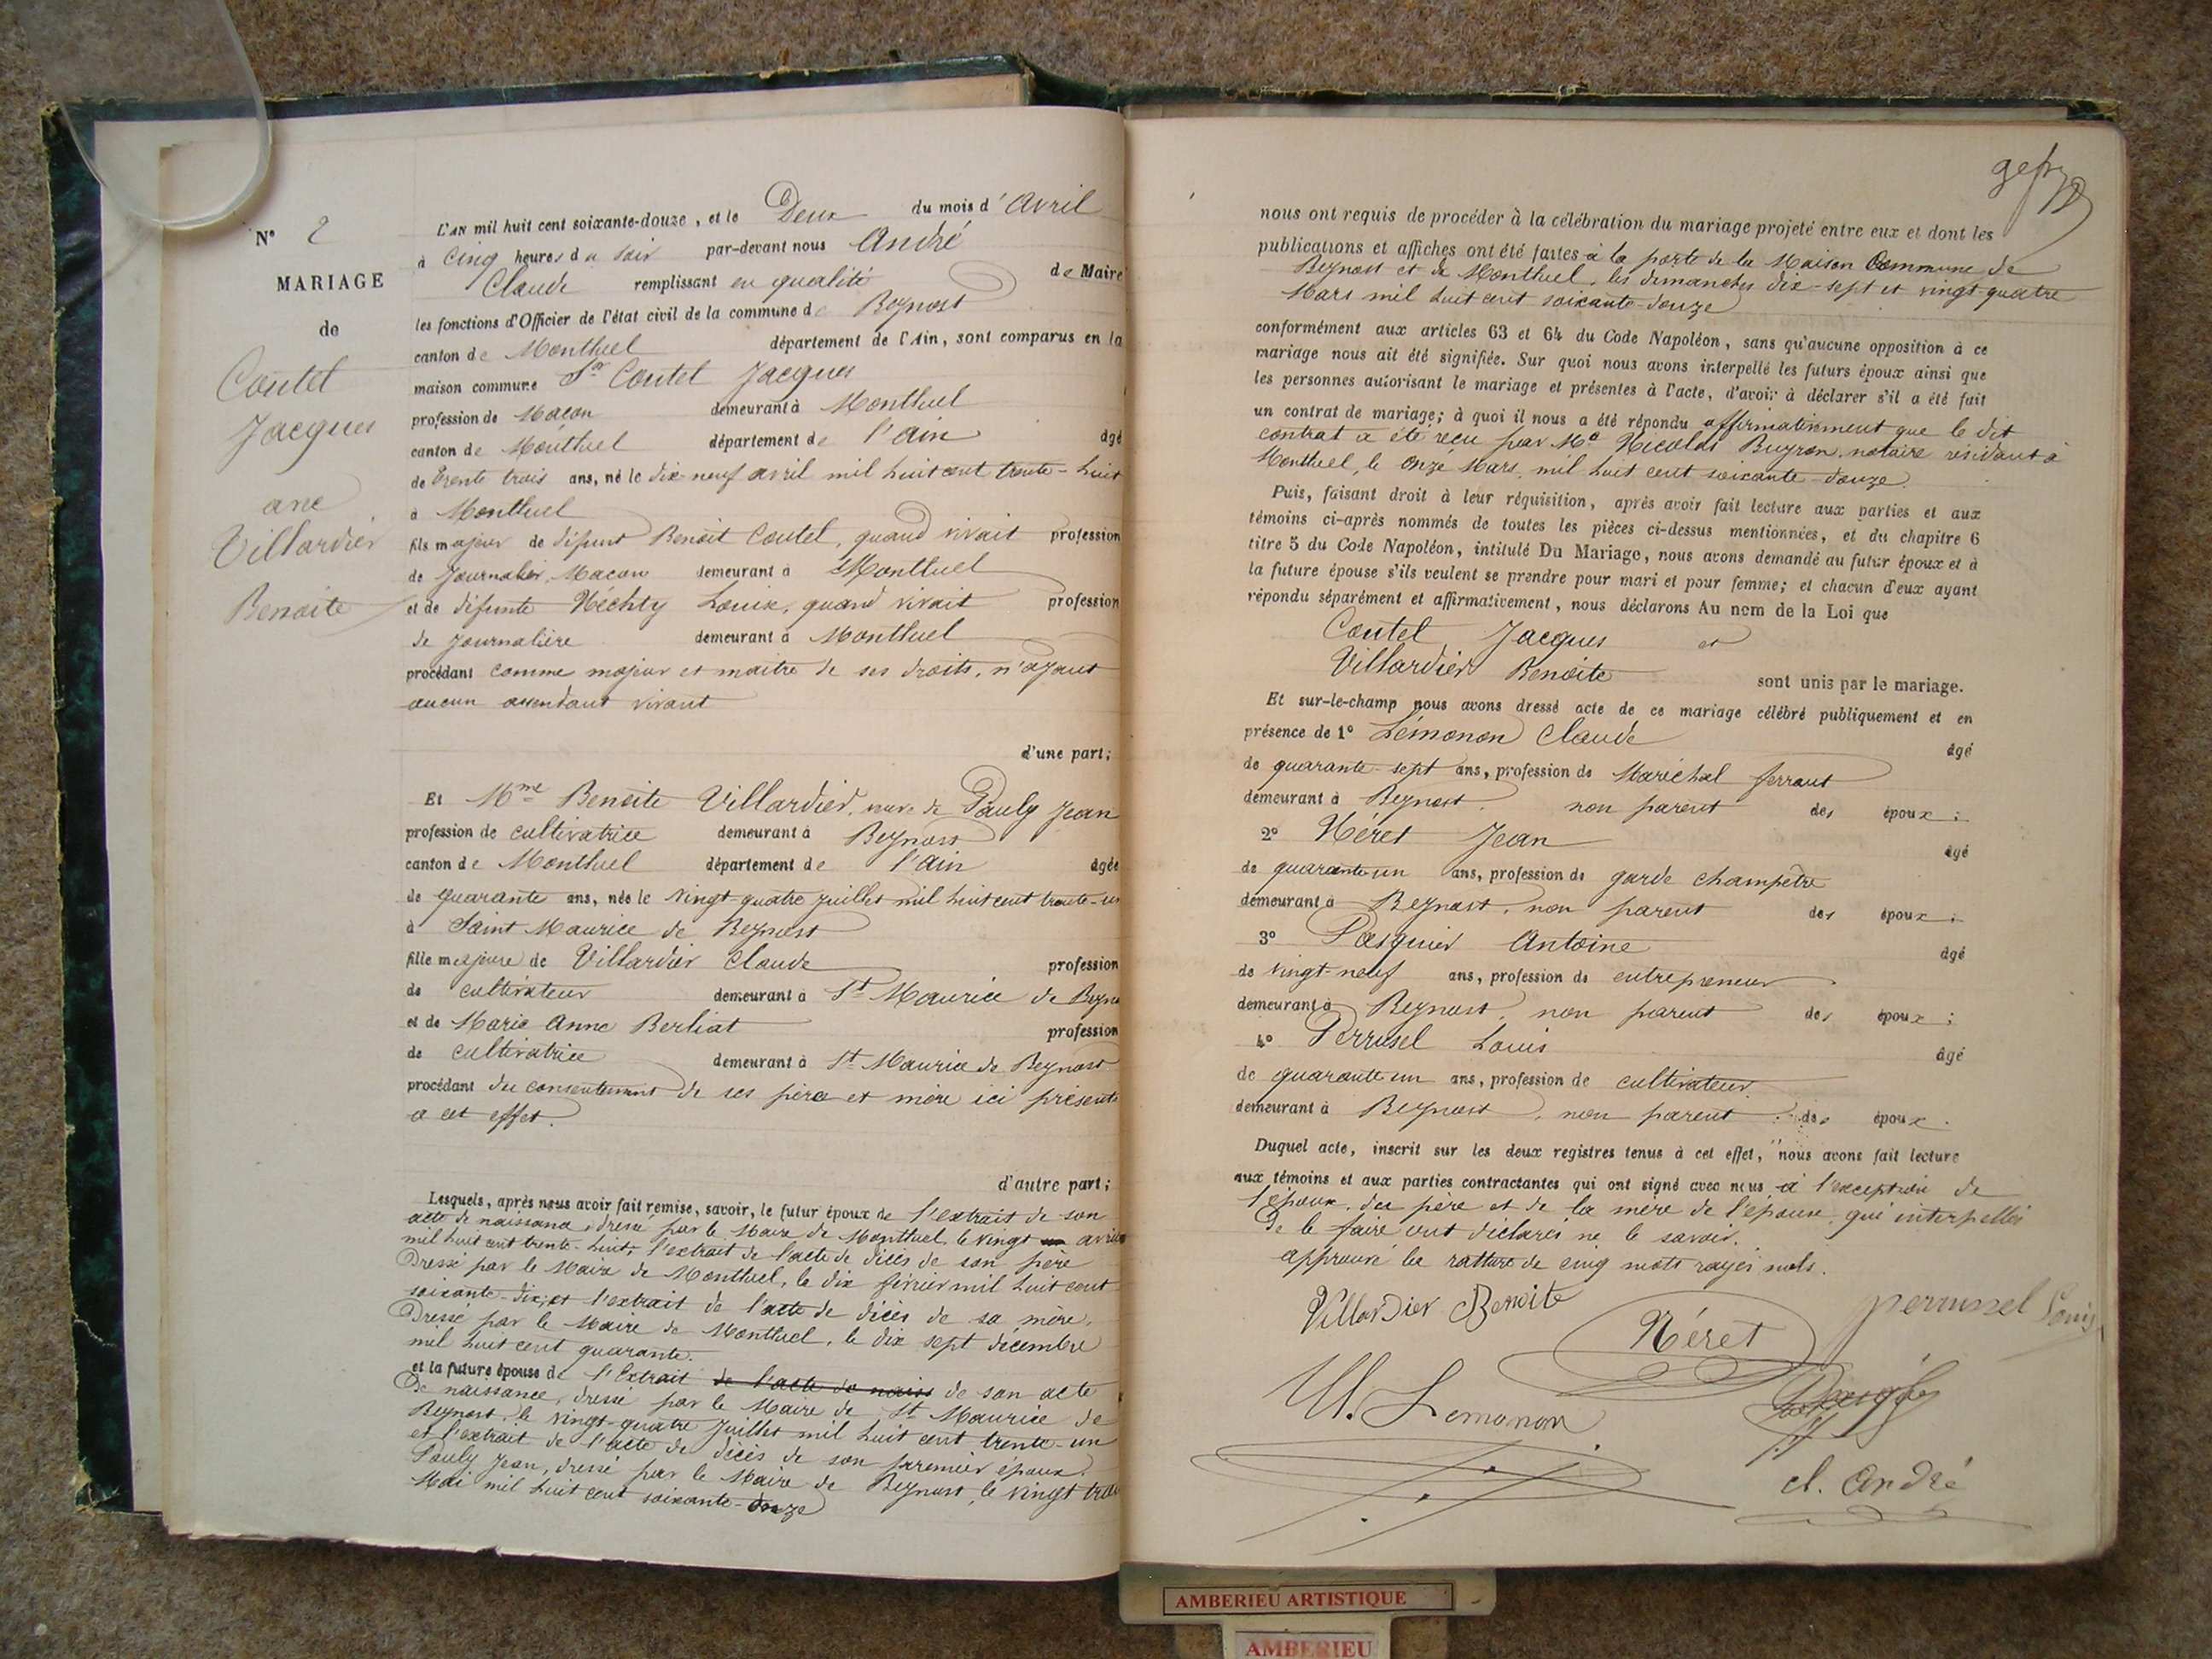 N° 2
MARIAGE
de
Coutel
Jacques
avec
Villardier
Benoite
L'AN mil huit cent soixante-douze, et le Deux du mois d'Avril
à Cinq heures du soir par-devant nous André
Claude remplissant en qualité de Maire
les fonctions d'Officier de l'état civil de la commune de Beynost
canton de Montluel département de l'Ain, sont comparus en la
maison commune Sr Coutel Jacques
profession de Maçon demeurant à Montluel
canton de Montluel département de l'Ain âgé
de trente trois ans, né le dix neuf avril mil huit cent trente-huit
à Montluel
fils majeur de défunt Benoit Coutel, quand vivait profession
de Journalier, Maçon demeurant à Montluel
et de défunte Héchty Louise, quand vivait profession
de Journalière demeurant à Montluel
procédant comme majeur et maître de ses droits, n'ayant
aucun ascendant vivant
d'une part;
Et Mme Benoite Villardier, veuve de Pauly Jean
profession de cultivatrice demeurant à Beynost
canton de Montluel département de l'Ain âgée
de quarante ans, née le vingt-quatre juillet mil huit cent trente-un
à Saint Maurice de Beynost
fille majeure de Villardier Claude profession
de cultivateur demeurant à St Maurice de Beyno
et de Marie Anne Berliat profession
de cultivatrice demeurant à St Maurice de Beynost
procédant du consentement de ses père et mère ici présents
à cet effet.
d'autre part;
Lesquels, après nous avoir fait remise, savoir, le futur époux de l'extrait de son
acte de naissance, dressé par le Maire de Montluel, le vingt avril
mil huit cent trente-huit; l'extrait de l'acte de décès de son père
Dressé par le Maire de Montluel, le dix février mil huit cent
soixante-dix; et l'extrait de l'acte de décès de sa mère,
Dressé par le Maire de Montluel, le dix sept décembre
mil huit cent quarante.
et la future épouse de l'Extrait de l'acte de naiss de son acte
De naissance, dressé par le Maire de St Maurice de
Beynost, le vingt-quatre Juillet mil huit cent trente-un
et l'extrait de l'acte de décès de son premier époux
Pauly Jean, dressé par le Maire de Beynost, le vingt trois
Mai mil huit cent soixante-onze
nous ont requis de procéder à la célébration du mariage projeté entre eux et dont les
publications et affiches ont été faites à la porte de la Maison Commune de
Beynost et de Montluel, les dimanches dix-sept et vingt-quatre
Mars mil huit cent soixante-douze
conformément aux articles 63 et 64 du Code Napoléon, sans qu'aucune opposition à ce
mariage nous ait été signifiée. Sur quoi nous avons interpellé les futurs époux ainsi que
les personnes autorisant le mariage et présentes à l'acte, d'avoir à déclarer s'il a été fait
un contrat de mariage; à quoi il nous a été répondu affirmativement que le dit
contrat a été reçu par Me Nicolas Buyron, notaire résidant à
Montluel, le onze Mars mil huit cent soixante-douze.
Puis, faisant droit à leur réquisition, après avoir fait lecture aux parties et aux
témoins ci-après nommés de toutes les pièces ci-dessus mentionnées, et du chapitre 6
titre 5 du Code Napoléon, intitulé Du Mariage, nous avons demandé au futur époux et à
la future épouse s'ils veulent se prendre pour mari et pour femme; et chacun d'eux ayant
répondu séparément et affirmativement, nous déclarons Au nom de la Loi que
Coutel Jacques et
Villardier Benoite sont unis par le mariage.
Et sur-le-champ nous avons dressé acte de ce mariage célébré publiquement et en
présence de 1° Lémonon Claude âgé
de quarante-sept ans, profession de Maréchal ferrant
demeurant à Beynost, non parent des époux;
2° Héret Jean âgé
de quarante un ans, profession de garde champêtre
demeurant à Beynost, non parent des époux;
3° Pasquier Antoine âgé
de vingt-neuf ans, profession de entrepreneur
demeurant à Beynost, non parent des époux;
4° Perrusel Louis âgé
de quarante un ans, profession de cultivateur
demeurant à Beynost, non parent des époux.
Duquel acte, inscrit sur les deux registres tenus à cet effet, nous avons fait lecture
aux témoins et aux parties contractantes qui ont signé avec nous, à l'exception de
l'époux, du père et de la mère de l'épouse, qui interpellés
De le faire ont déclarés ne le savoir.
approuvé la rature de cinq mots rayés nuls.
Villardier Benoite
perrussel Louis
Héret
Lemonon
cl. André
AMBERIEU ARTISTIQUE
AMBERIEU